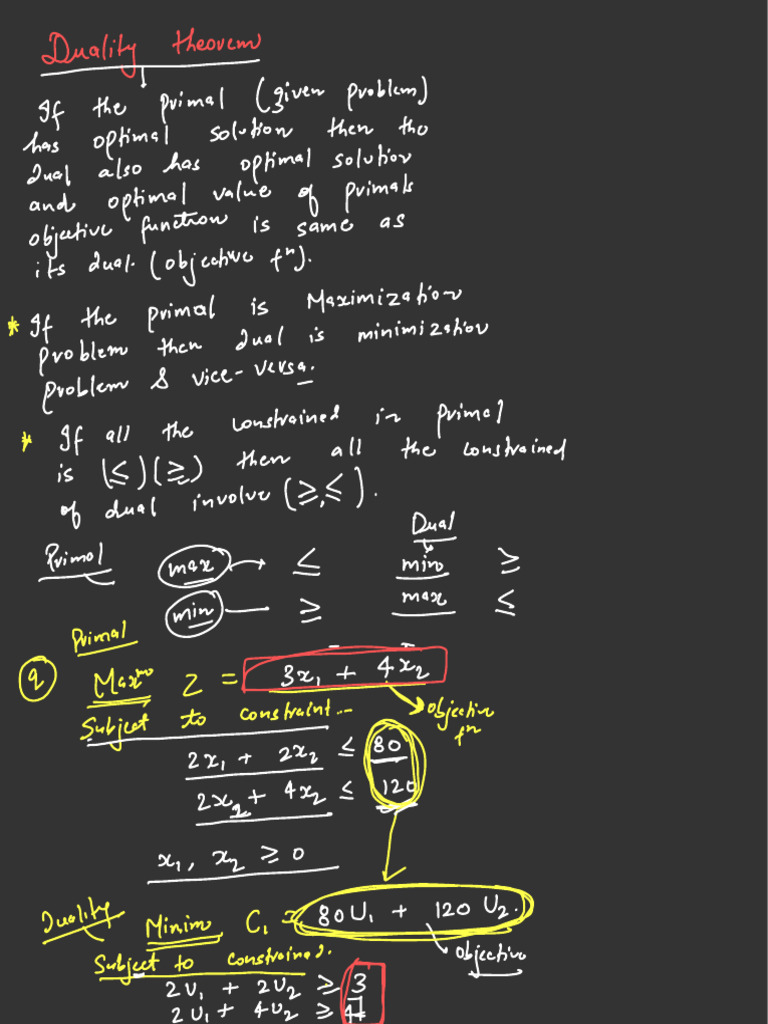 Duality theorem
If the primal (given problem)
has optimal solution then the
dual also has optimal solution
and optimal value of primals
objective function is same as
its dual. (objective fⁿ).
* If the primal is Maximization
problem then dual is minimization
problem & vice-versa.
* If all the constrained in primal
is (≤)(≥) then all the constrained
of dual involve (≥,≤).
Dual
Primal max → ≤ min ≥
min — ≥ max ≤
Primal
q Maxᵐ Z = 3x₁ + 4x₂
Subject to constraint.. → objective fⁿ
2x₁ + 2x₂ ≤ 80
2x₂ + 4x₂ ≤ 120
x₁, x₂ ≥ 0
Duality Minim C₁ = 80U₁ + 120U₂.
Subject to constrained. objective
2U₁ + 2U₂ ≥ 3
2U₁ + 4U₂ ≥ 4